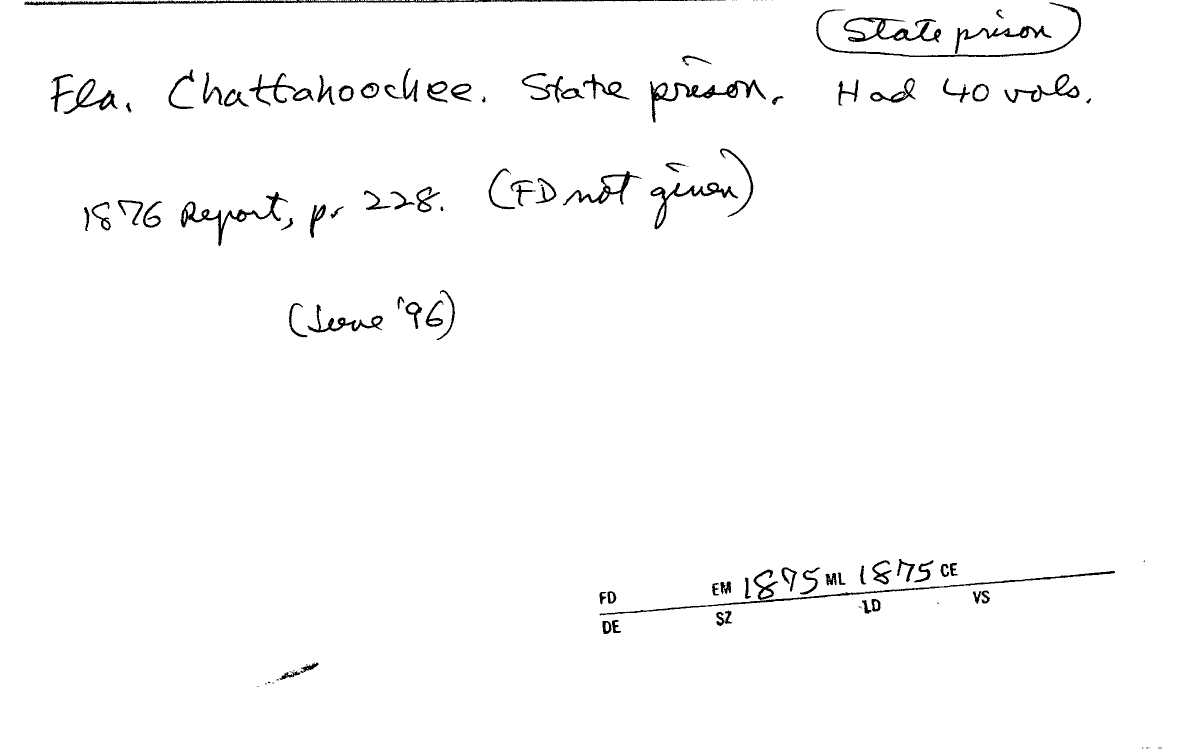 (State prison)
Fla. Chattahoochee. State prison. Had 40 vols.
1876 Report, p. 228. (FD not given)
(June '96)
FD EM 1875 ML 1875 CE
DE SZ LD VS